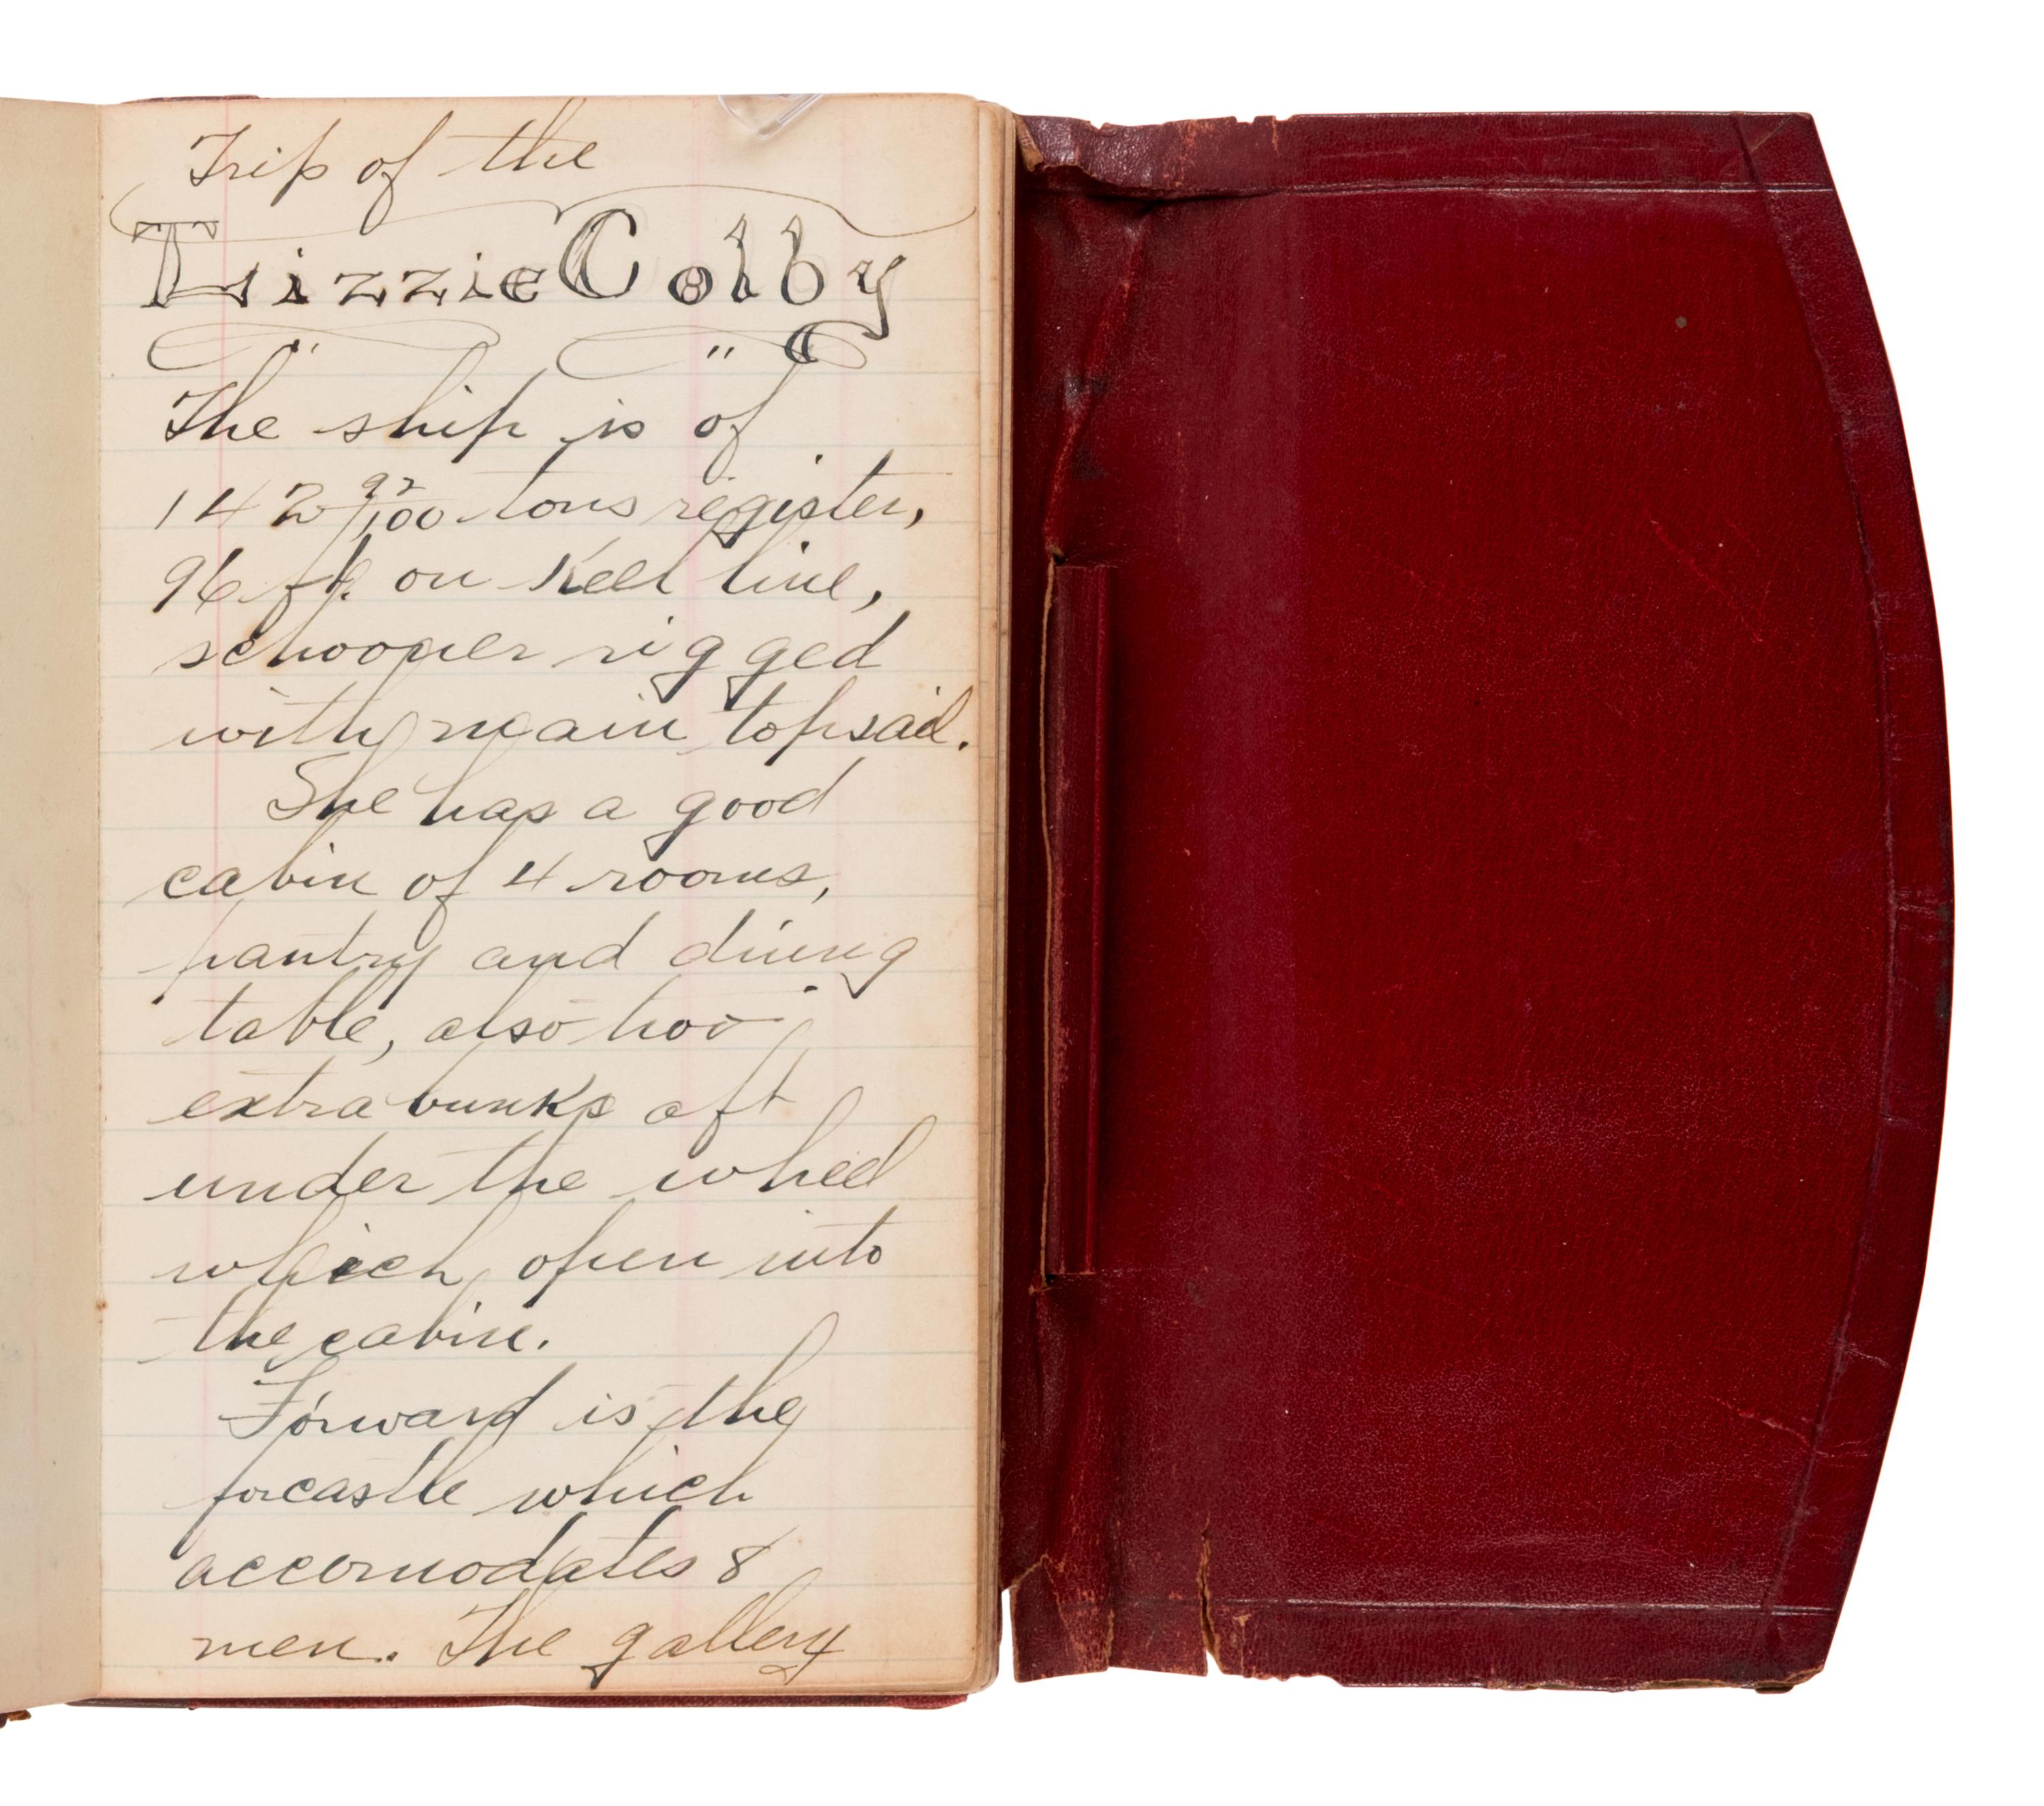 Trip of the
Lizzie Colby
" "
The ship is of
142 92/100 tons register,
96 ft. on Keel line,
schooner rigged
with main topsail.
She has a good
cabin of 4 rooms,
pantry and dining
table, also two
extra bunks aft
under the wheel
which open into
the cabin.
Forward is the
forcastle which
accomodates 8
men. The gallery